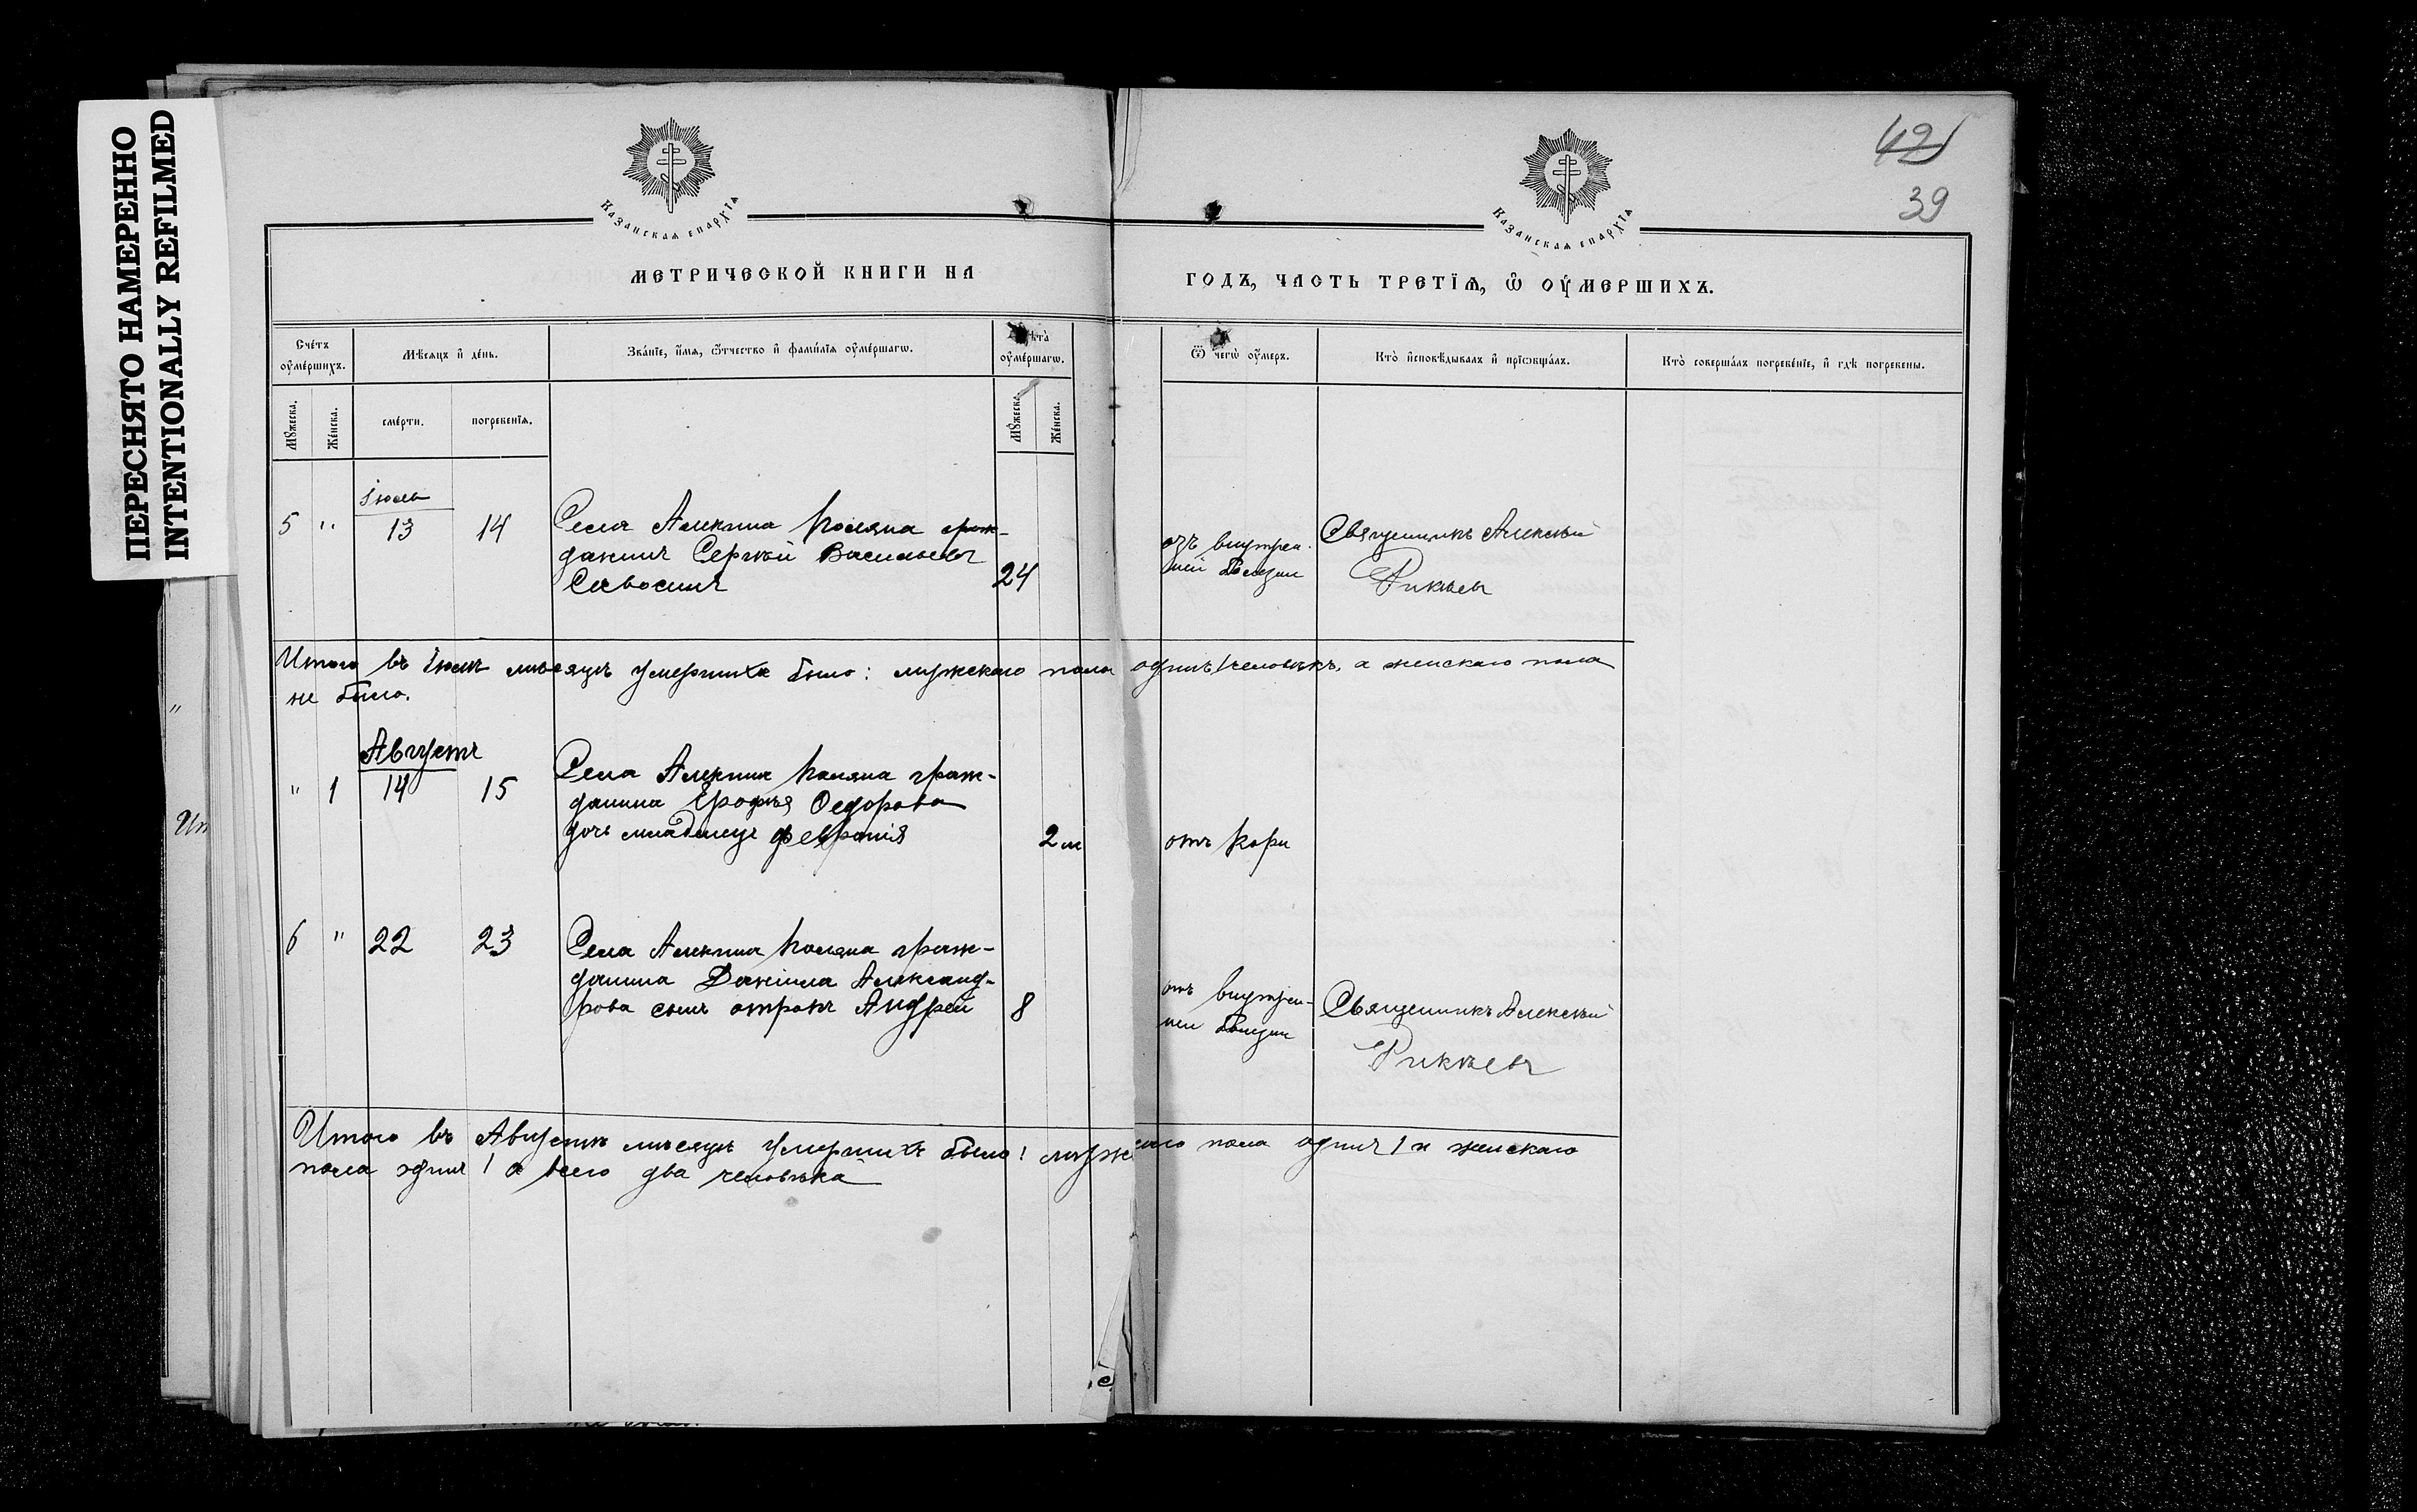 ПЕРЕСНЯТО НАМЕРЕННО
INTENTIONALLY REFILMED
42
39
Казанская епархїѧ
Казанская епархїѧ
МЕТРИЧЕСКОЙ КНИГИ НА ГОДЪ, ЧАСТЬ ТРЕТЇѦ, Ѽ ОУ҆МЕРШИХЪ.
Сче́тъ оу҆ме́ршихъ.
Мѣ́сѧцъ и҆ де́нь.
Зва́нїе, и҆́мѧ, ѻ҆́тчество и҆ фами́лїѧ оу҆ме́ршагѡ.
Лѣта̀ оу҆ме́ршагѡ.
Ѿ чегѡ̀ оу҆́меръ.
Кто̀ и҆сповѣ́дывалъ и҆ прїѡбща́лъ.
Кто̀ соверша́лъ погребе́нїе, и҆ гдѣ̀ погребены.
Мꙋ́жеска.
Же́нска.
сме́рти.
погребенїѧ.
Мꙋ́жеска.
Же́нска.
Іюль
5 " 13 14 Села Алекина Поляна граж-
данинъ Сергѣй Васильевъ
Савосинъ 24
отъ внутрен-
ней болѣзни
Священникъ Алексѣй
Рикѣевъ
Итого въ Іюлѣ мѣсяцѣ умершихъ было: мужскаго пола одинъ 1 человѣкъ, а женскаго пола
не было.
Августъ
" 1 14 15 Села Алекина Поляна граж-
данина Ерофѣя Ѳедорова
дочь младенецъ Февронія 2 м
отъ кори
6 " 22 23 Села Алекина Поляна граж-
данина Даніила Александ-
рова сынъ отрокъ Андрей 8
отъ внутрен-
ней болѣзни
Священникъ Алексѣй
Рикѣевъ
Итого въ Августѣ мѣсяцѣ умершихъ было: мужскаго пола одинъ 1 и женскаго
пола одинъ 1 а всего два человѣка